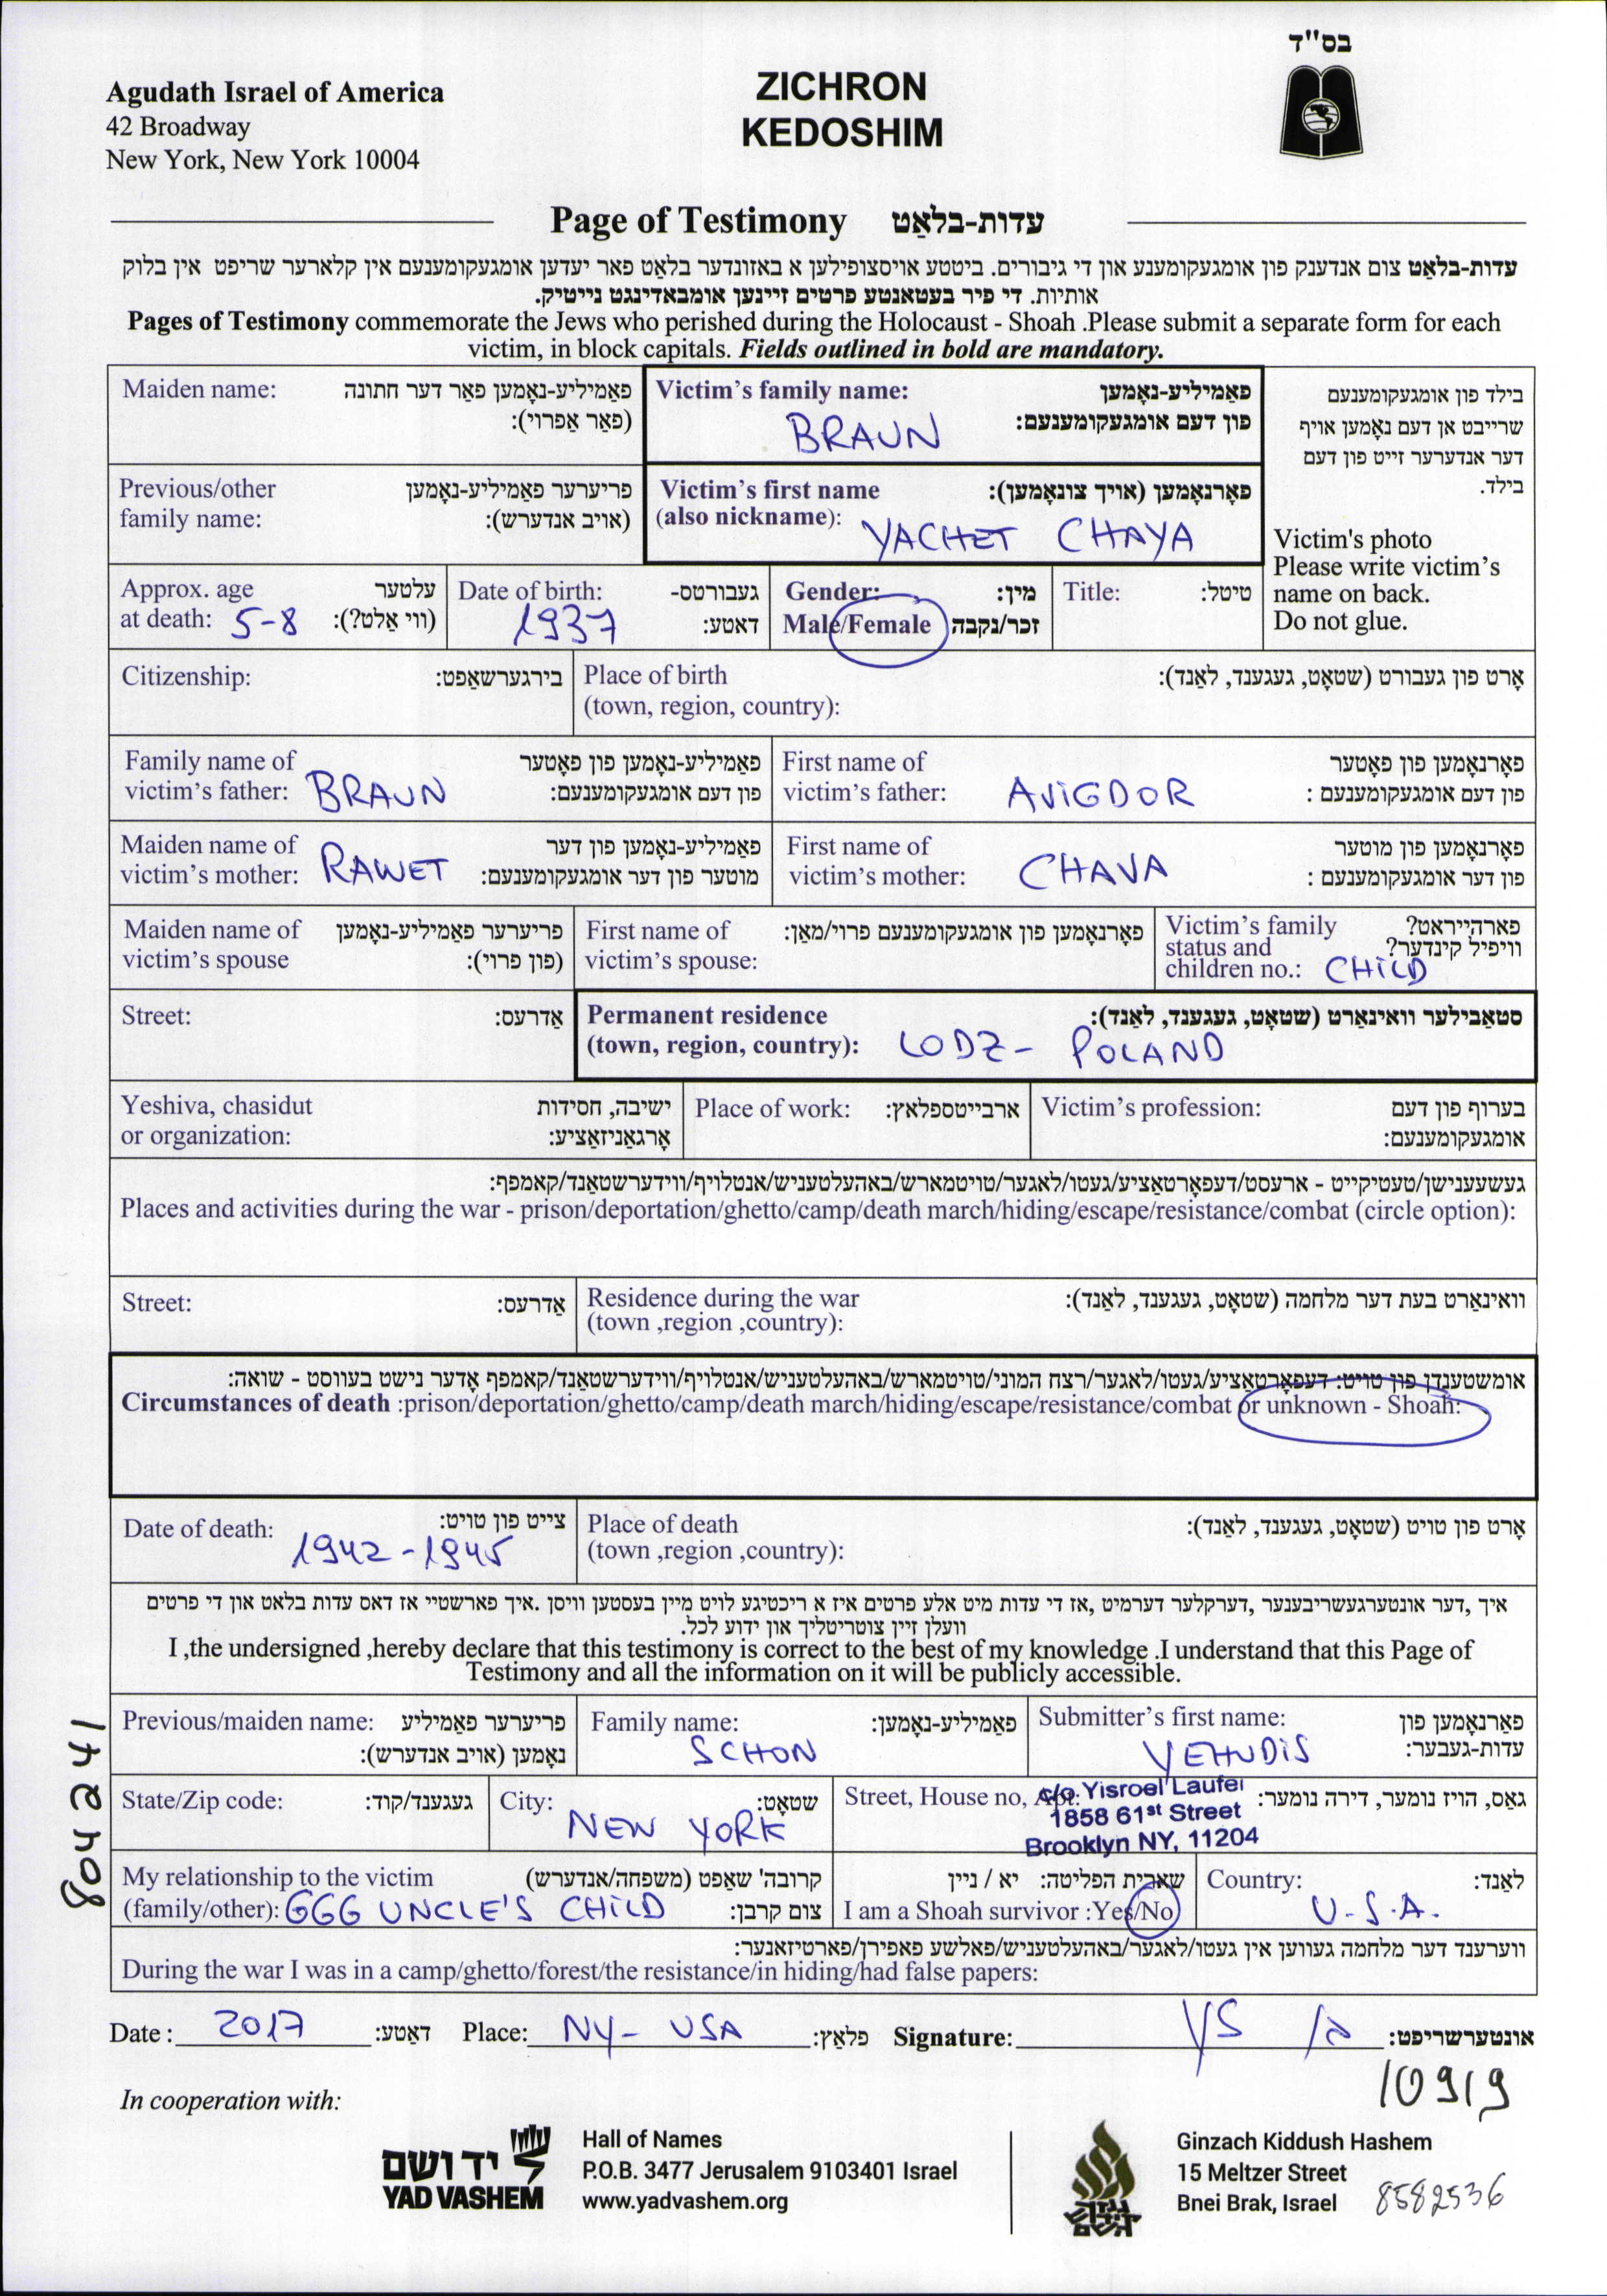 בס"ד
Agudath Israel of America
42 Broadway
New York, New York 10004
ZICHRON
KEDOSHIM
Page of Testimony עדות-בלאַט
עדות-בלאַט צום אנדענק פון אומגעקומענע און די גיבורים. ביטטע אויסצופילען א באזונדער בלאַט פאר יעדען אומגעקומענעם אין קלארער שריפט אין בלוק
אותיות. די פיר בעטאנטע פרטים זיינען אומבאדינגט נייטיק.
Pages of Testimony commemorate the Jews who perished during the Holocaust - Shoah .Please submit a separate form for each
victim, in block capitals. Fields outlined in bold are mandatory.
Maiden name: פאַמיליע-נאָמען פאַר דער חתונה
(פאַר אַפרוי):
Victim's family name: פאַמיליע-נאָמען
פון דעם אומגעקומענעם:
BRAUN
Previous/other פריערער פאַמיליע-נאָמען
family name: (אויב אנדערש):
Victim's first name פאָרנאָמען (אויך צונאָמען):
(also nickname): YACHET CHAYA
בילד פון אומגעקומענעם
שרייבט אן דעם נאָמען אויף
דער אנדערער זייט פון דעם
בילד.
Victim's photo
Please write victim's
name on back.
Do not glue.
Approx. age עלטער
at death: 5-8 (ווי אַלט?):
Date of birth: געבורטס-
1937 דאטע:
Gender: מין:
Male/Female זכר/נקבה
Title: טיטל:
Citizenship: בירגערשאַפט:
Place of birth אָרט פון געבורט (שטאָט, געגענד, לאַנד):
(town, region, country):
Family name of פאַמיליע-נאָמען פון פאָטער
victim's father: BRAUN פון דעם אומגעקומענעם:
First name of פאָרנאָמען פון פאָטער
victim's father: AVIGDOR פון דעם אומגעקומענעם :
Maiden name of פאַמיליע-נאָמען פון דער
victim's mother: RAWET מוטער פון דער אומגעקומענעם:
First name of פאָרנאָמען פון מוטער
victim's mother: CHAVA פון דער אומגעקומענעם :
Maiden name of פריערער פאַמיליע-נאָמען
victim's spouse (פון פרוי):
First name of פאָרנאָמען פון אומגעקומענעם פרוי/מאַן:
victim's spouse:
Victim's family פארהייראט?
status and וויפיל קינדער?
children no.: CHILD
Street: אַדרעס:
Permanent residence סטאַבילער וואינאַרט (שטאָט, געגענד, לאַנד):
(town, region, country): LODZ - POLAND
Yeshiva, chasidut ישיבה, חסידות
or organization: אָרגאַניזאַציע:
Place of work: ארבייטספלאץ:
Victim's profession: בערוף פון דעם
אומגעקומענעם:
געשעענישן/טעטיקייט - ארעסט/דעפאָרטאַציע/געטו/לאגער/טויטמארש/באהעלטעניש/אנטלויף/ווידערשטאַנד/קאמפף:
Places and activities during the war - prison/deportation/ghetto/camp/death march/hiding/escape/resistance/combat (circle option):
Street: אַדרעס:
Residence during the war וואינאַרט בעת דער מלחמה (שטאָט, געגענד, לאַנד):
(town ,region ,country):
אומשטענדן פון טויט: דעפאָרטאַציע/געטו/לאגער/רצח המוני/טויטמארש/באהעלטעניש/אנטלויף/ווידערשטאַנד/קאמפף אָדער נישט בעווסט - שואה:
Circumstances of death :prison/deportation/ghetto/camp/death march/hiding/escape/resistance/combat or unknown - Shoah:
Date of death: צייט פון טויט:
1942 - 1945
Place of death אָרט פון טויט (שטאָט, געגענד, לאַנד):
(town ,region ,country):
איך ,דער אונטערגעשריבענער ,דערקלער דערמיט ,אז די עדות מיט אלע פרטים איז א ריכטיגע לויט מיין בעסטען וויסן .איך פארשטיי אז דאס עדות בלאט און די פרטים
וועלן זיין צוטריטליך און ידוע לכל.
I ,the undersigned ,hereby declare that this testimony is correct to the best of my knowledge .I understand that this Page of
Testimony and all the information on it will be publicly accessible.
Previous/maiden name: פריערער פאַמיליע
נאָמען (אויב אנדערש):
Family name: פאַמיליע-נאָמען:
SCHON
Submitter's first name: פאָרנאָמען פון
YEHUDIS עדות-געבער:
State/Zip code: געגענד/קוד:
City: שטאָט:
NEW YORK
Street, House no, Apt: גאַס, הויז נומער, דירה נומער:
c/o Yisroel Laufer
1858 61st Street
Brooklyn NY, 11204
My relationship to the victim קרובה' שאַפט (משפחה/אנדערש)
(family/other): GGG UNCLE'S CHILD צום קרבן:
שארית הפליטה: יא / ניין
I am a Shoah survivor :Yes/No
Country: לאַנד:
U.S.A.
ווערענד דער מלחמה געווען אין געטו/לאגער/באהעלטעניש/פאלשע פאפירן/פארטיזאנער:
During the war I was in a camp/ghetto/forest/the resistance/in hiding/had false papers:
Date : 2017 דאַטע: Place: NY - USA פלאַץ: Signature: YS אונטערשריפט:
10919
In cooperation with:
יד ושם
YAD VASHEM
Hall of Names
P.O.B. 3477 Jerusalem 9103401 Israel
www.yadvashem.org
Ginzach Kiddush Hashem
15 Meltzer Street
Bnei Brak, Israel 8582536